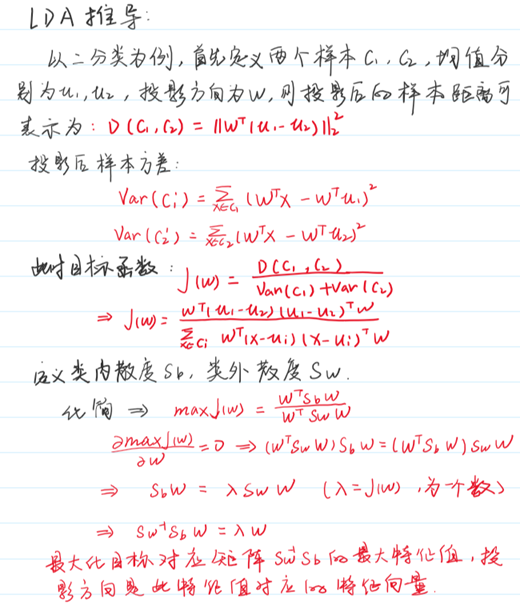 LDA推导:
以二分类为例,首先定义两个样本C₁,C₂,均值分
别为u₁,u₂,投影方向为W,则投影后的样本距离可
表示为: D(C₁,C₂) = ||Wᵀ(u₁-u₂)||₂²
投影后样本方差:
Var(C₁') = Σ_{x∈C₁} (Wᵀx - Wᵀu₁)²
Var(C₂') = Σ_{x∈C₂} (Wᵀx - Wᵀu₂)²
此时目标函数: J(w) = D(C₁,C₂) / (Var(C₁)+Var(C₂))
⇒ J(w) = Wᵀ(u₁-u₂)(u₁-u₂)ᵀW / Σ_{x∈Ci} Wᵀ(x-ui)(x-ui)ᵀW
定义类内散度Sb,类外散度Sw.
化简 ⇒ maxJ(w) = WᵀSbW / WᵀSwW
∂maxJ(w)/∂w = 0 ⇒ (WᵀSwW)SbW = (WᵀSbW)SwW
⇒ SbW = λSwW (λ=J(w),为一个数)
⇒ Sw⁻¹SbW = λW
最大化目标对应矩阵Sw⁻¹Sb的最大特征值,投
影方向是此特征值对应的特征向量.